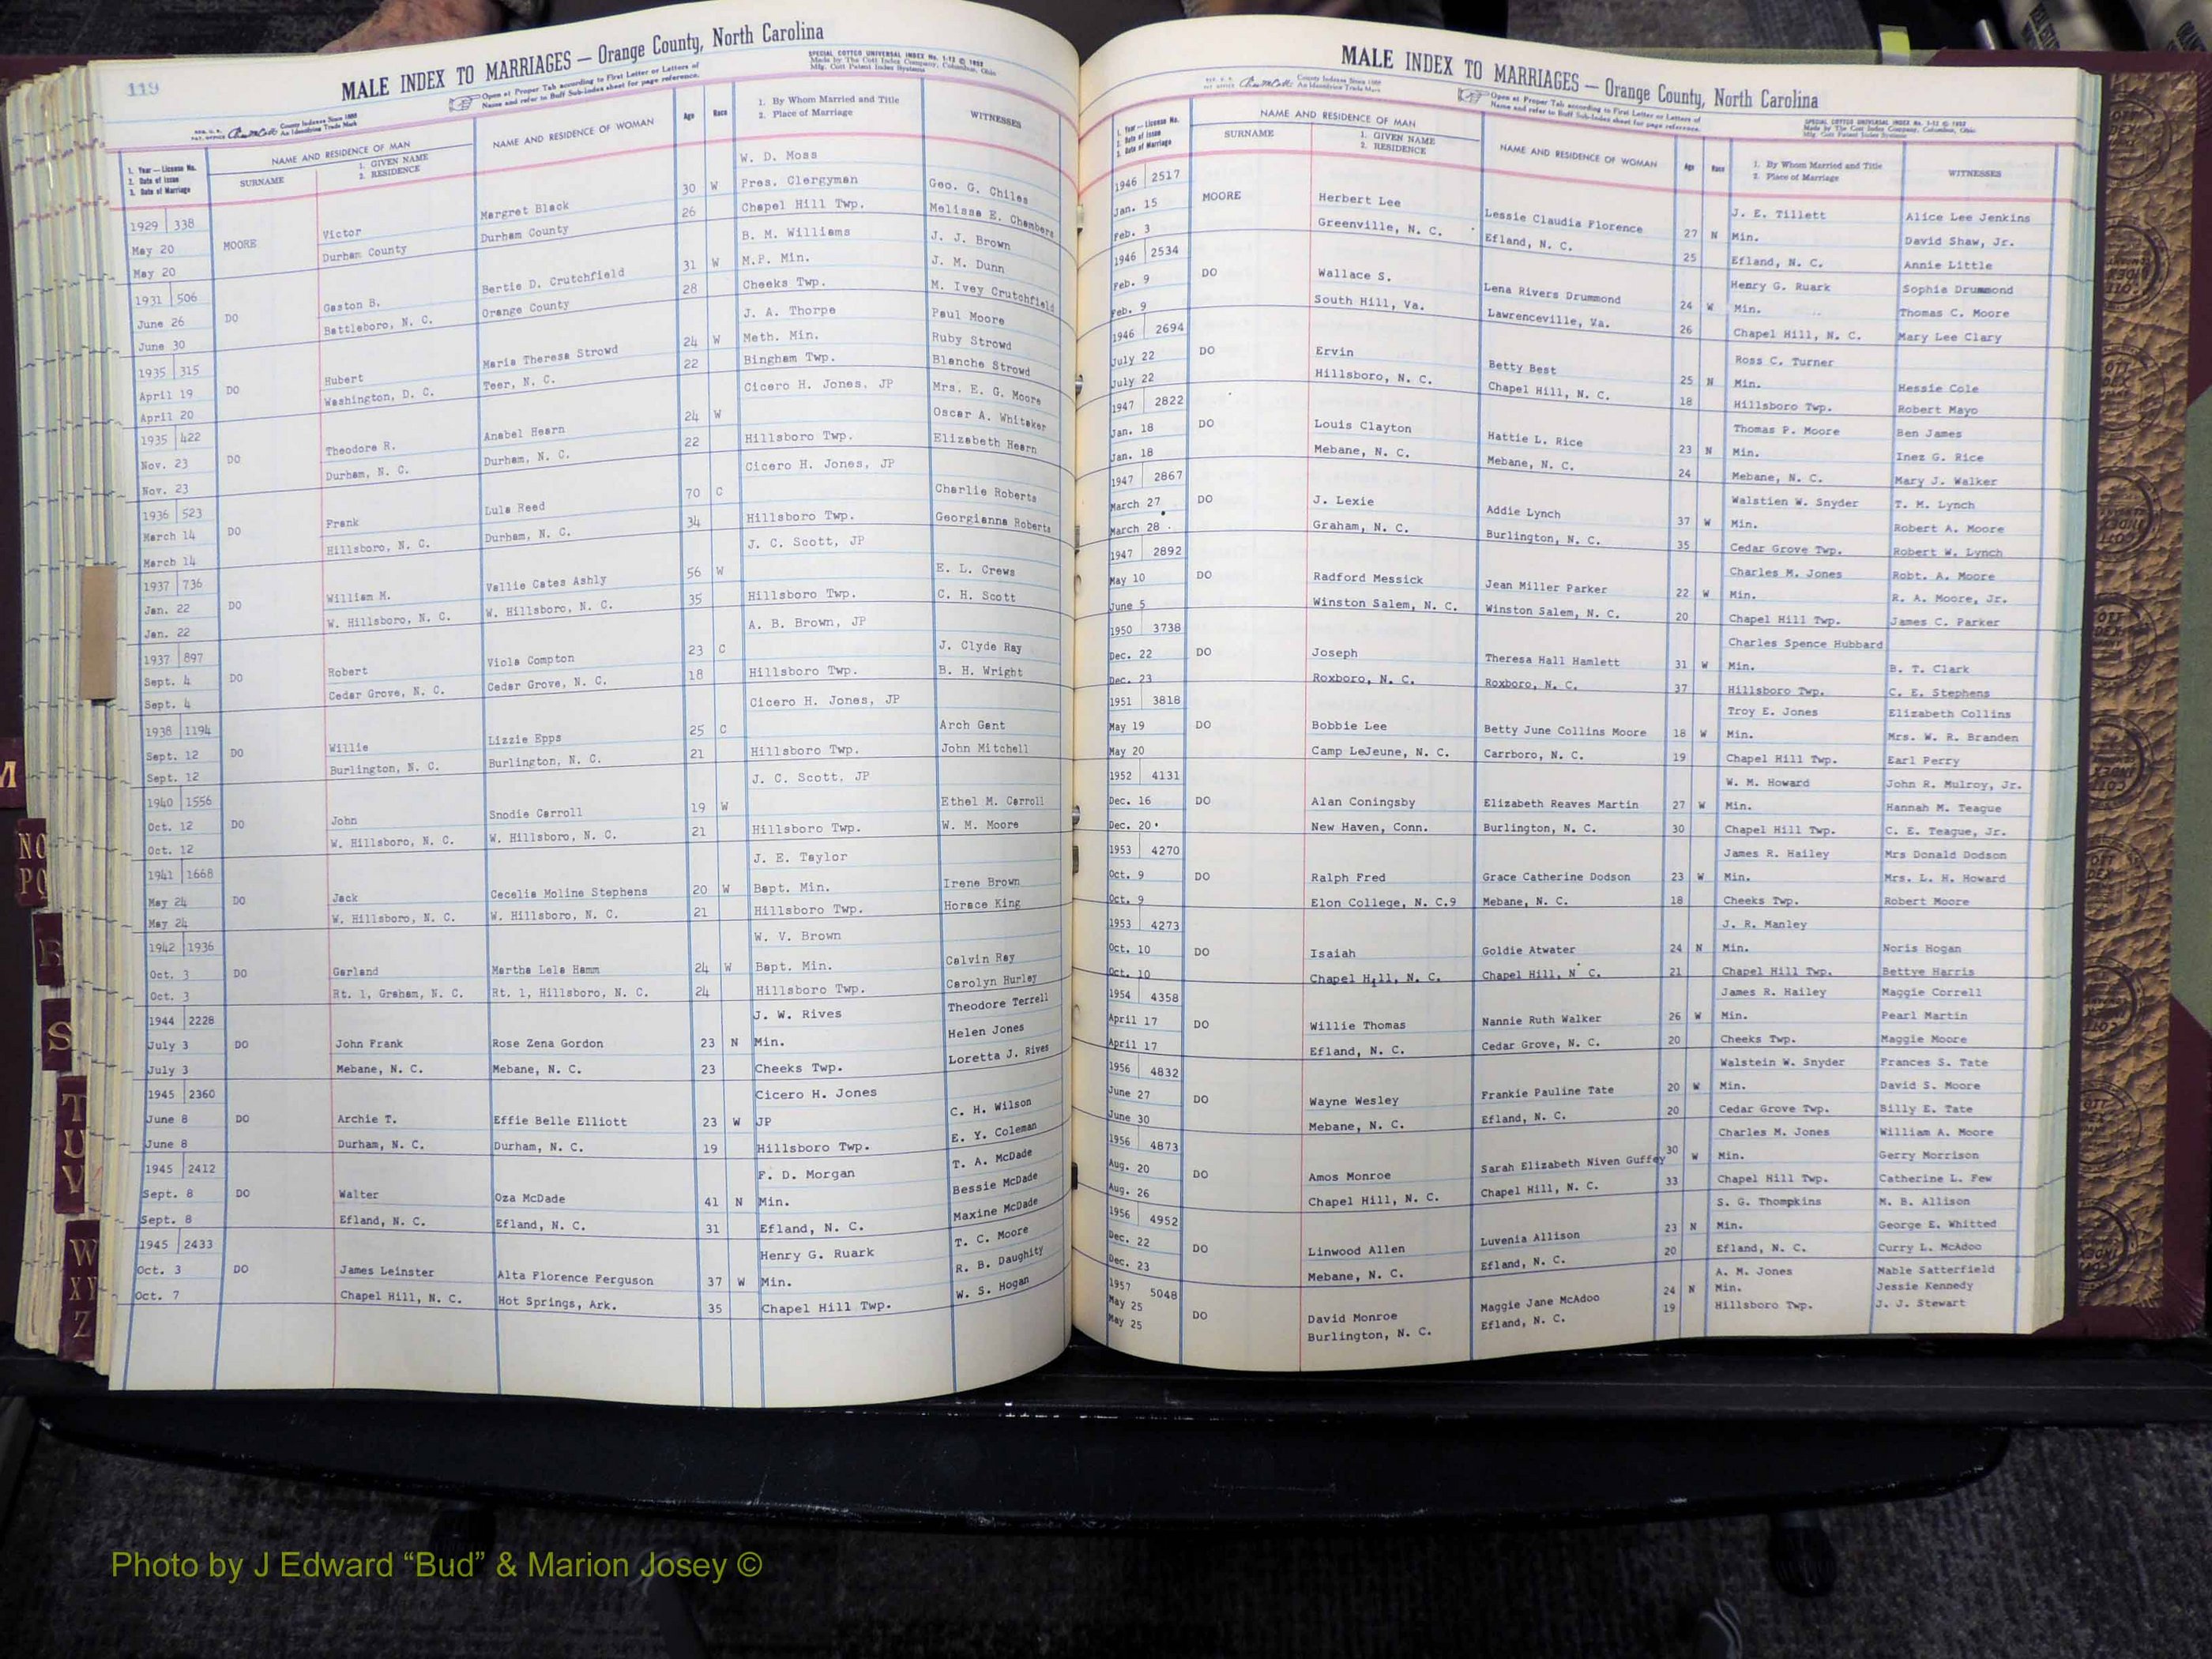 119
MALE INDEX TO MARRIAGES — Orange County, North Carolina
SPECIAL COTTCO UNIVERSAL INDEX No. 1-12 © 1952
Made by The Cott Index Company, Columbus, Ohio
Mfg. Cott Patent Index Systems
Open at Proper Tab according to First Letter or Letters of
Name and refer to Buff Sub-index sheet for page reference.
County Indexes Since 1888
An Identifying Trade Mark
1. Year — License No.
2. Date of Issue
3. Date of Marriage
NAME AND RESIDENCE OF MAN
SURNAME
1. GIVEN NAME
2. RESIDENCE
NAME AND RESIDENCE OF WOMAN
Age
Race
1. By Whom Married and Title
2. Place of Marriage
WITNESSES
W. D. Moss
1929 338 Margret Black 30 W Pres. Clergyman Geo. G. Chiles
May 20 MOORE Victor Durham County 26 Chapel Hill Twp. Melissa E. Chambers
May 20 Durham County
B. M. Williams J. J. Brown
1931 506 Bertie D. Crutchfield 31 W M.P. Min. J. M. Dunn
June 26 DO Gaston B. Orange County 28 Cheeks Twp. M. Ivey Crutchfield
June 30 Battleboro, N. C.
J. A. Thorpe Paul Moore
1935 315 Maria Theresa Strowd 24 W Meth. Min. Ruby Strowd
April 19 DO Hubert Teer, N. C. 22 Bingham Twp. Blanche Strowd
April 20 Washington, D. C.
Cicero H. Jones, JP Mrs. E. G. Moore
1935 422 Anabel Hearn 24 W Oscar A. Whitaker
Nov. 23 DO Theodore R. Durham, N. C. 22 Hillsboro Twp. Elizabeth Hearn
Nov. 23 Durham, N. C.
Cicero H. Jones, JP
1936 523 Lula Reed 70 C Charlie Roberts
March 14 DO Frank Durham, N. C. 34 Hillsboro Twp. Georgianna Roberts
March 14 Hillsboro, N. C.
J. C. Scott, JP
1937 736 Vallie Cates Ashly 56 W E. L. Crews
Jan. 22 DO William M. W. Hillsboro, N. C. 35 Hillsboro Twp. C. H. Scott
Jan. 22 W. Hillsboro, N. C.
A. B. Brown, JP
1937 897 Viola Compton 23 C J. Clyde Ray
Sept. 4 DO Robert Cedar Grove, N. C. 18 Hillsboro Twp. B. H. Wright
Sept. 4 Cedar Grove, N. C.
Cicero H. Jones, JP
1938 1194 Lizzie Epps 25 C Arch Gant
Sept. 12 DO Willie Burlington, N. C. 21 Hillsboro Twp. John Mitchell
Sept. 12 Burlington, N. C.
J. C. Scott, JP
1940 1556 Snodie Carroll 19 W Ethel M. Carroll
Oct. 12 DO John W. Hillsboro, N. C. 21 Hillsboro Twp. W. M. Moore
Oct. 12 W. Hillsboro, N. C.
J. E. Taylor
1941 1668 Cecelia Moline Stephens 20 W Bapt. Min. Irene Brown
May 24 DO Jack W. Hillsboro, N. C. 21 Hillsboro Twp. Horace King
May 24 W. Hillsboro, N. C.
W. V. Brown
1942 1936 Calvin Ray
Oct. 3 DO Garland Martha Lela Hamm 24 W Bapt. Min. Carolyn Hurley
Oct. 3 Rt. 1, Graham, N. C. Rt. 1, Hillsboro, N. C. 24 Hillsboro Twp. Theodore Terrell
1944 2228 J. W. Rives Helen Jones
July 3 DO John Frank Rose Zena Gordon 23 N Min. Loretta J. Rives
July 3 Mebane, N. C. Mebane, N. C. 23 Cheeks Twp.
1945 2360 Cicero H. Jones C. H. Wilson
June 8 DO Archie T. Effie Belle Elliott 23 W JP E. Y. Coleman
June 8 Durham, N. C. Durham, N. C. 19 Hillsboro Twp.
1945 2412 F. D. Morgan T. A. McDade
Sept. 8 DO Walter Oza McDade 41 N Min. Bessie McDade
Sept. 8 Efland, N. C. Efland, N. C. 31 Efland, N. C. Maxine McDade
1945 2433 Henry G. Ruark T. C. Moore
Oct. 3 DO James Leinster Alta Florence Ferguson 37 W Min. R. B. Daughity
Oct. 7 Chapel Hill, N. C. Hot Springs, Ark. 35 Chapel Hill Twp. W. S. Hogan
MALE INDEX TO MARRIAGES — Orange County, North Carolina
County Indexes Since 1888
An Identifying Trade Mark
Open at Proper Tab according to First Letter or Letters of
Name and refer to Buff Sub-index sheet for page reference.
SPECIAL COTTCO UNIVERSAL INDEX No. 1-12 © 1952
Made by The Cott Index Company, Columbus, Ohio
Mfg. Cott Patent Index Systems
1. Year — License No.
2. Date of Issue
3. Date of Marriage
NAME AND RESIDENCE OF MAN
SURNAME
1. GIVEN NAME
2. RESIDENCE
NAME AND RESIDENCE OF WOMAN
Age
Race
1. By Whom Married and Title
2. Place of Marriage
WITNESSES
1946 2517 J. E. Tillett Alice Lee Jenkins
Jan. 15 MOORE Herbert Lee Lessie Claudia Florence 27 N Min. David Shaw, Jr.
Feb. 3 Greenville, N. C. Efland, N. C. 25 Efland, N. C. Annie Little
1946 2534 Henry G. Ruark Sophia Drummond
Feb. 9 DO Wallace S. Lena Rivers Drummond 24 W Min. Thomas C. Moore
Feb. 9 South Hill, Va. Lawrenceville, Va. 26 Chapel Hill, N. C. Mary Lee Clary
1946 2694 Ross C. Turner
July 22 DO Ervin Betty Best 25 N Min. Hessie Cole
July 22 Hillsboro, N. C. Chapel Hill, N. C. 18 Hillsboro Twp. Robert Mayo
1947 2822 Thomas P. Moore Ben James
Jan. 18 DO Louis Clayton Hattie L. Rice 23 N Min. Inez G. Rice
Jan. 18 Mebane, N. C. Mebane, N. C. 24 Mebane, N. C. Mary J. Walker
1947 2867 Walstien W. Snyder T. M. Lynch
March 27 DO J. Lexie Addie Lynch 37 W Min. Robert A. Moore
March 28 Graham, N. C. Burlington, N. C. 35 Cedar Grove Twp. Robert W. Lynch
1947 2892 Charles M. Jones Robt. A. Moore
May 10 DO Radford Messick Jean Miller Parker 22 W Min. R. A. Moore, Jr.
June 5 Winston Salem, N. C. Winston Salem, N. C. 20 Chapel Hill Twp. James C. Parker
1950 3738 Charles Spence Hubbard
Dec. 22 DO Joseph Theresa Hall Hamlett 31 W Min. B. T. Clark
Dec. 23 Roxboro, N. C. Roxboro, N. C. 37 Hillsboro Twp. C. E. Stephens
1951 3818 Troy E. Jones Elizabeth Collins
May 19 DO Bobbie Lee Betty June Collins Moore 18 W Min. Mrs. W. R. Branden
May 20 Camp LeJeune, N. C. Carrboro, N. C. 19 Chapel Hill Twp. Earl Perry
1952 4131 W. M. Howard John R. Mulroy, Jr.
Dec. 16 DO Alan Coningsby Elizabeth Reaves Martin 27 W Min. Hannah M. Teague
Dec. 20 New Haven, Conn. Burlington, N. C. 30 Chapel Hill Twp. C. E. Teague, Jr.
1953 4270 James R. Hailey Mrs Donald Dodson
Oct. 9 DO Ralph Fred Grace Catherine Dodson 23 W Min. Mrs. L. H. Howard
Oct. 9 Elon College, N. C.9 Mebane, N. C. 18 Cheeks Twp. Robert Moore
1953 4273 J. R. Manley
Oct. 10 DO Isaiah Goldie Atwater 24 N Min. Noris Hogan
Oct. 10 Chapel Hill, N. C. Chapel Hill, N C. 21 Chapel Hill Twp. Bettye Harris
1954 4358 James R. Hailey Maggie Correll
April 17 DO Willie Thomas Nannie Ruth Walker 26 W Min. Pearl Martin
April 17 Efland, N. C. Cedar Grove, N. C. 20 Cheeks Twp. Maggie Moore
1956 4832 Walstein W. Snyder Frances S. Tate
June 27 DO Wayne Wesley Frankie Pauline Tate 20 W Min. David S. Moore
June 30 Mebane, N. C. Efland, N. C. 20 Cedar Grove Twp. Billy E. Tate
1956 4873 Charles M. Jones William A. Moore
Aug. 20 DO Amos Monroe Sarah Elizabeth Niven Guffey 30 W Min. Gerry Morrison
Aug. 26 Chapel Hill, N. C. Chapel Hill, N. C. 33 Chapel Hill Twp. Catherine L. Few
1956 4952 S. G. Thompkins M. B. Allison
Dec. 22 DO Linwood Allen Luvenia Allison 23 N Min. George E. Whitted
Dec. 23 Mebane, N. C. Efland, N. C. 20 Efland, N. C. Curry L. McAdoo
1957 5048 A. M. Jones Mable Satterfield
May 25 DO David Monroe Maggie Jane McAdoo 24 N Min. Jessie Kennedy
May 25 Burlington, N. C. Efland, N. C. 19 Hillsboro Twp. J. J. Stewart
M
NO
PQ
R
S
T
U
V
W
XY
Z
Photo by J Edward “Bud” & Marion Josey ©